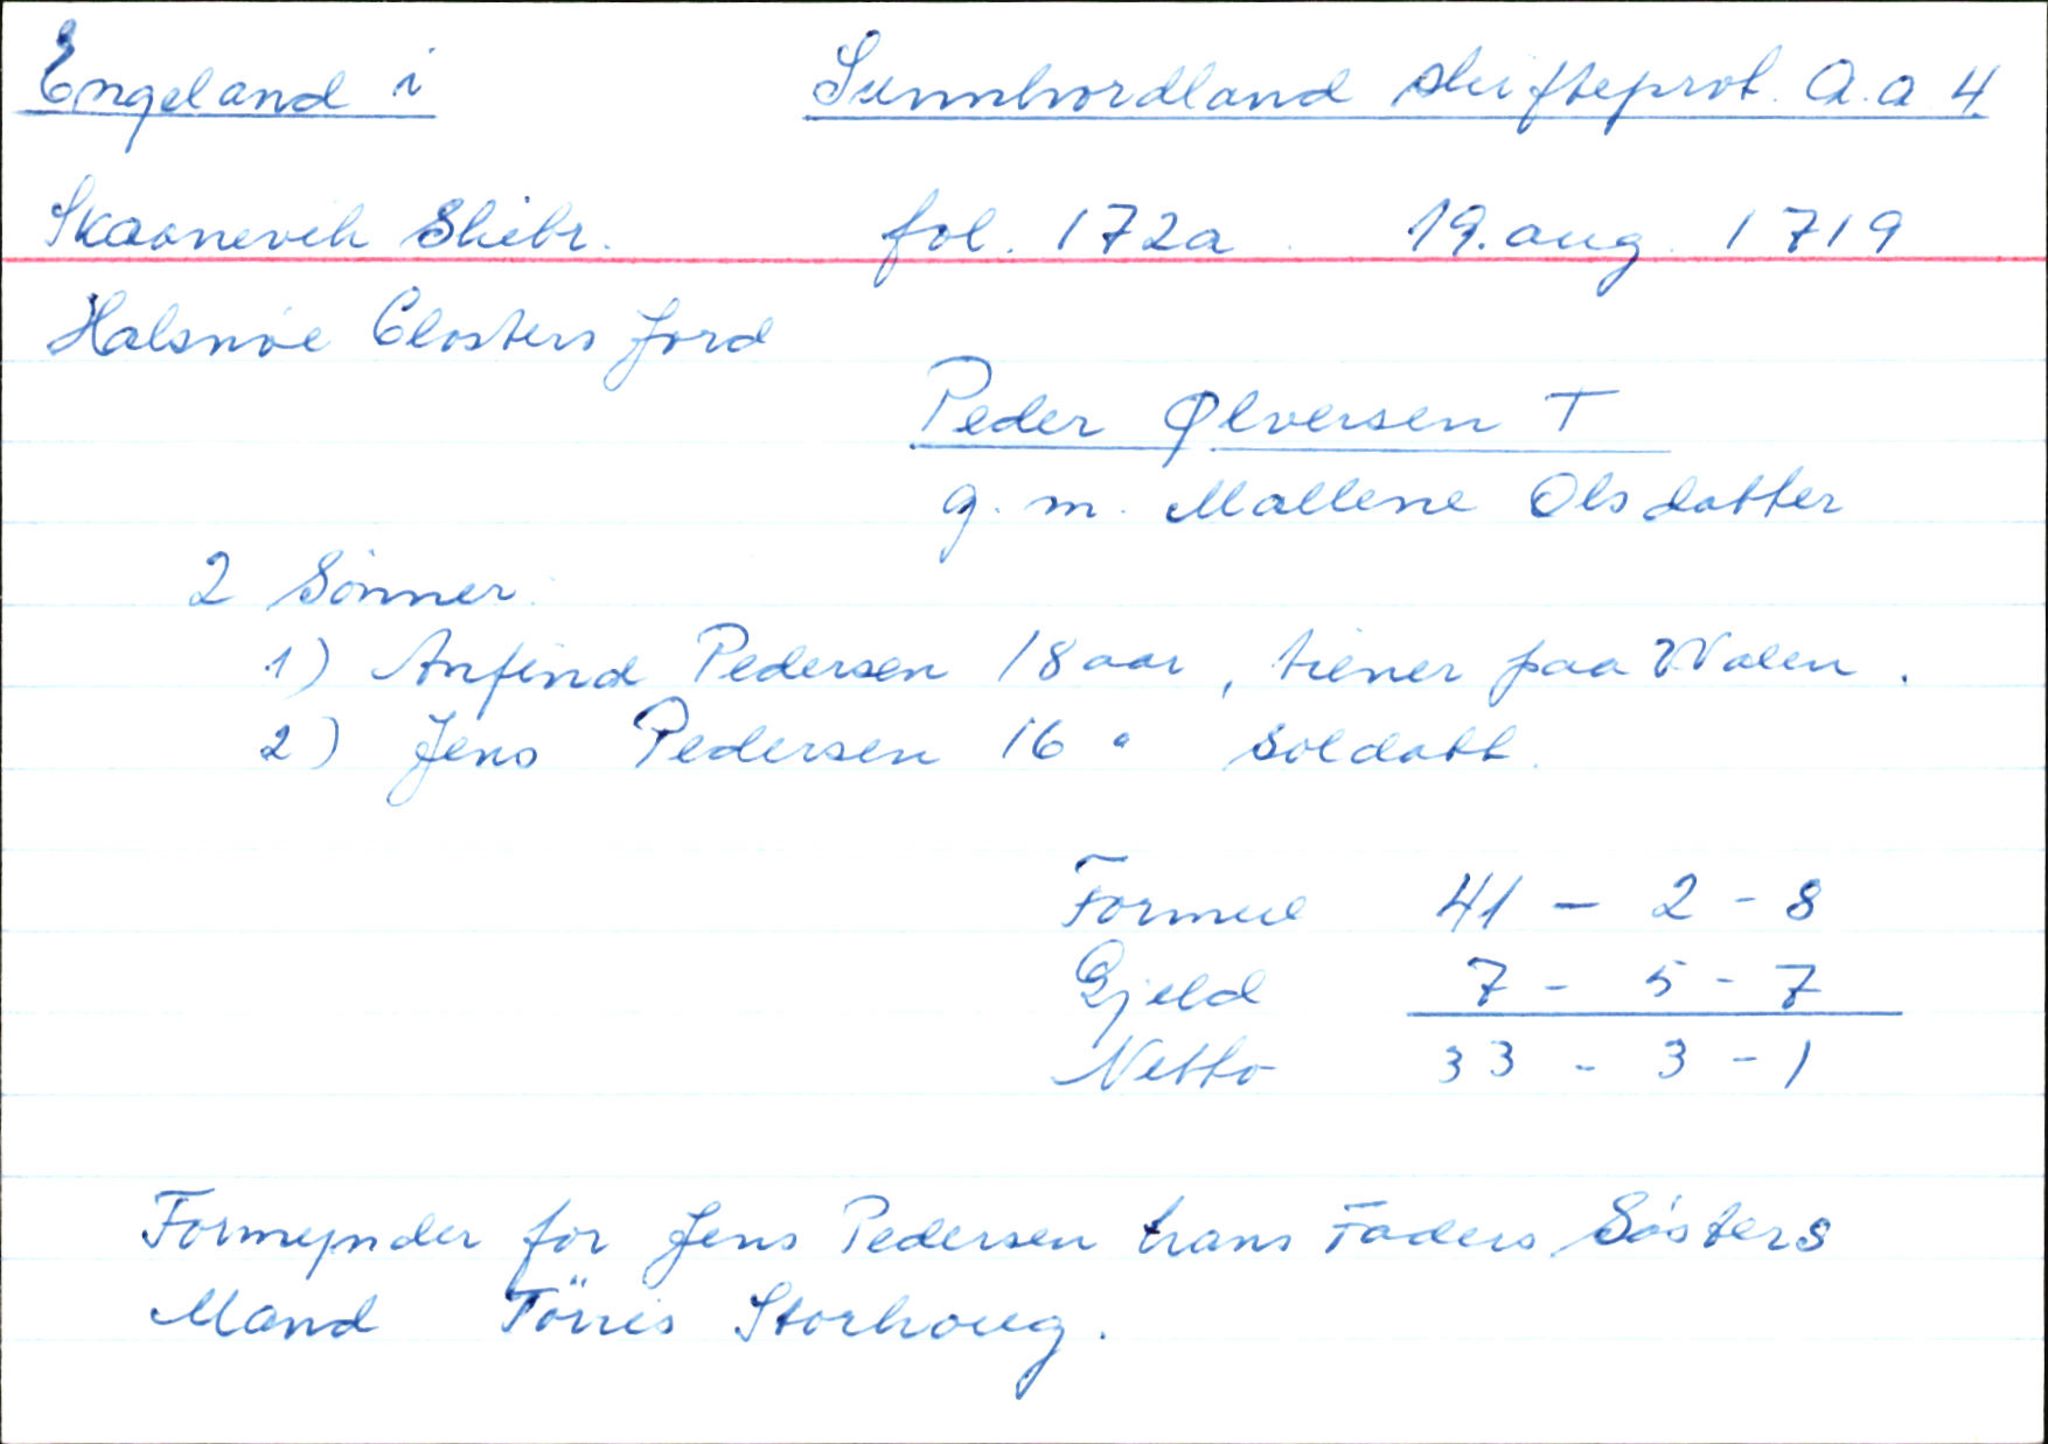 Engeland i Sunnhordland skifteprot. A.a 4.
Skaanevik Skibr. fol. 172a. 19. aug. 1719
Halsnöe Closters Jord
Peder Ølversen †
g. m. Mallene Olsdatter
2 Sönner:
1) Anfind Pedersen 18 aar, tiener paa Walen.
2) Jens Pedersen 16 " soldatt.
Formue 41 - 2 - 8
Gjeld 7 - 5 - 7
Netto 33 - 3 - 1
Formynder for Jens Pedersen hans Faders Sösters
Mand Törris Storhoug.